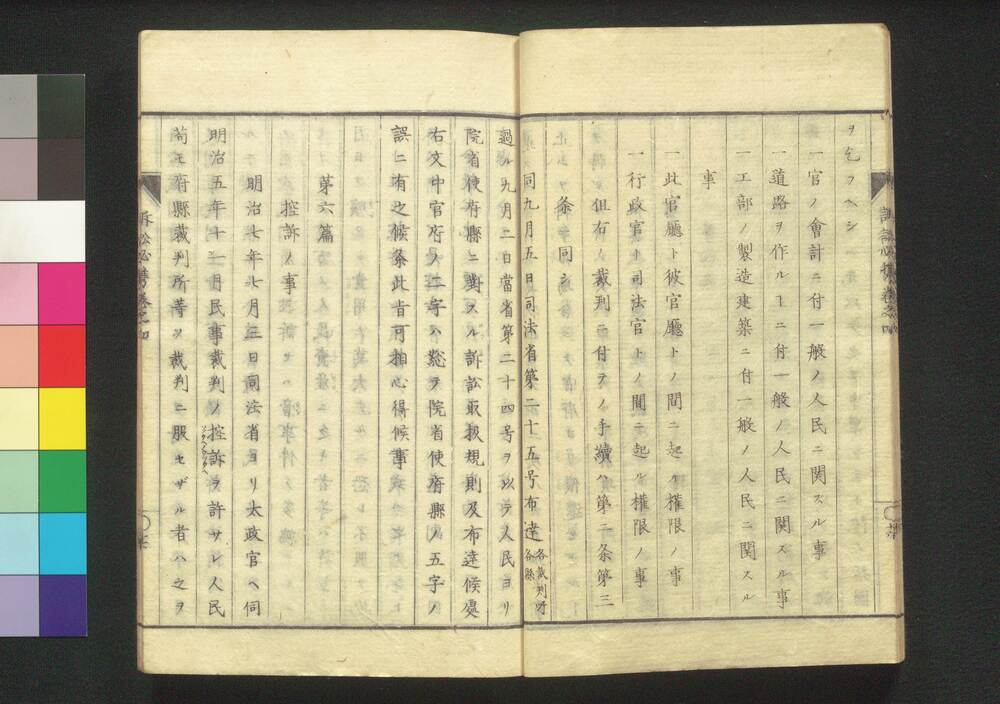 ヲ乞フヘシ
一官ノ會計ニ付一般ノ人民ニ関スル事
一道路ヲ作ルヿニ付一般ノ人民ニ関スル事
一工部ノ製造建築ニ付一般ノ人民ニ関スル
事
一此官廳ト彼官廳トノ間ニ起ル權限ノ事
一行政官ト司法官トノ間ニ起ル權限ノ事
但右ノ裁判ニ付テノ手續ハ第二条第三
条同断
同九月五日司法省第二十五号布達 各裁判所 各縣
過ル九月二日當省第二十四号ヲ以テ人民ヨリ
院省使府縣ニ對スル訴訟取扱規則及布達候處
右文中官府ノ二字ハ総テ院省使府縣ノ五字ノ
誤ニ有之候条此旨可相心得候事
第六篇
控訴ノ事
明治七年七月三日司法省ヨリ太政官ヘ伺
明治五年十一月民事裁判ノ控訴ヲ許サレ人民
苟モ府縣裁判所等ヲ裁判ニ服セザル者ハ之ヲ
訴訟必携巻之四